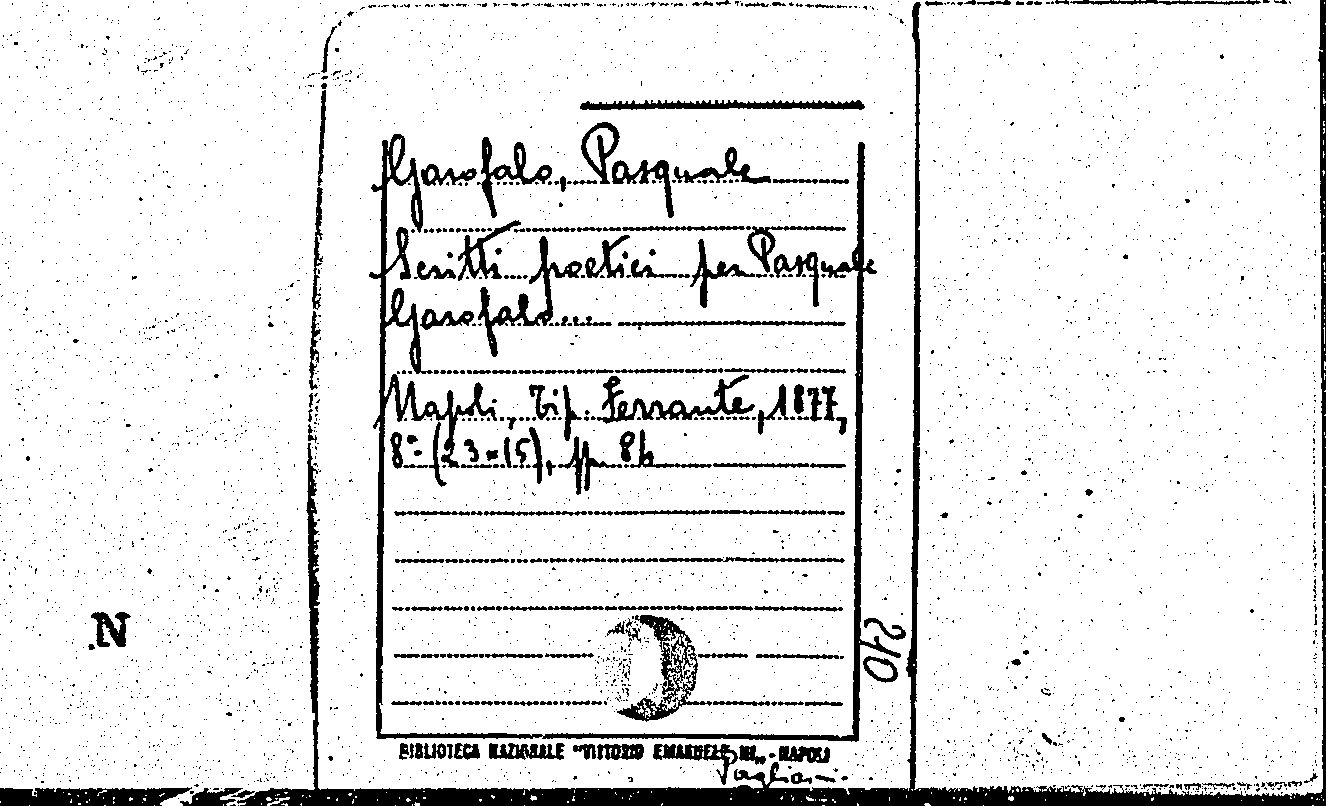 Garofalo, Pasquale
Scritti poetici per Pasquale
Garofalo...
Napoli, Tip. Ferrante, 1877,
8° (23×15), pp. 86
N
210
BIBLIOTECA NAZIONALE "VITTORIO EMANUELE III" - NAPOLI